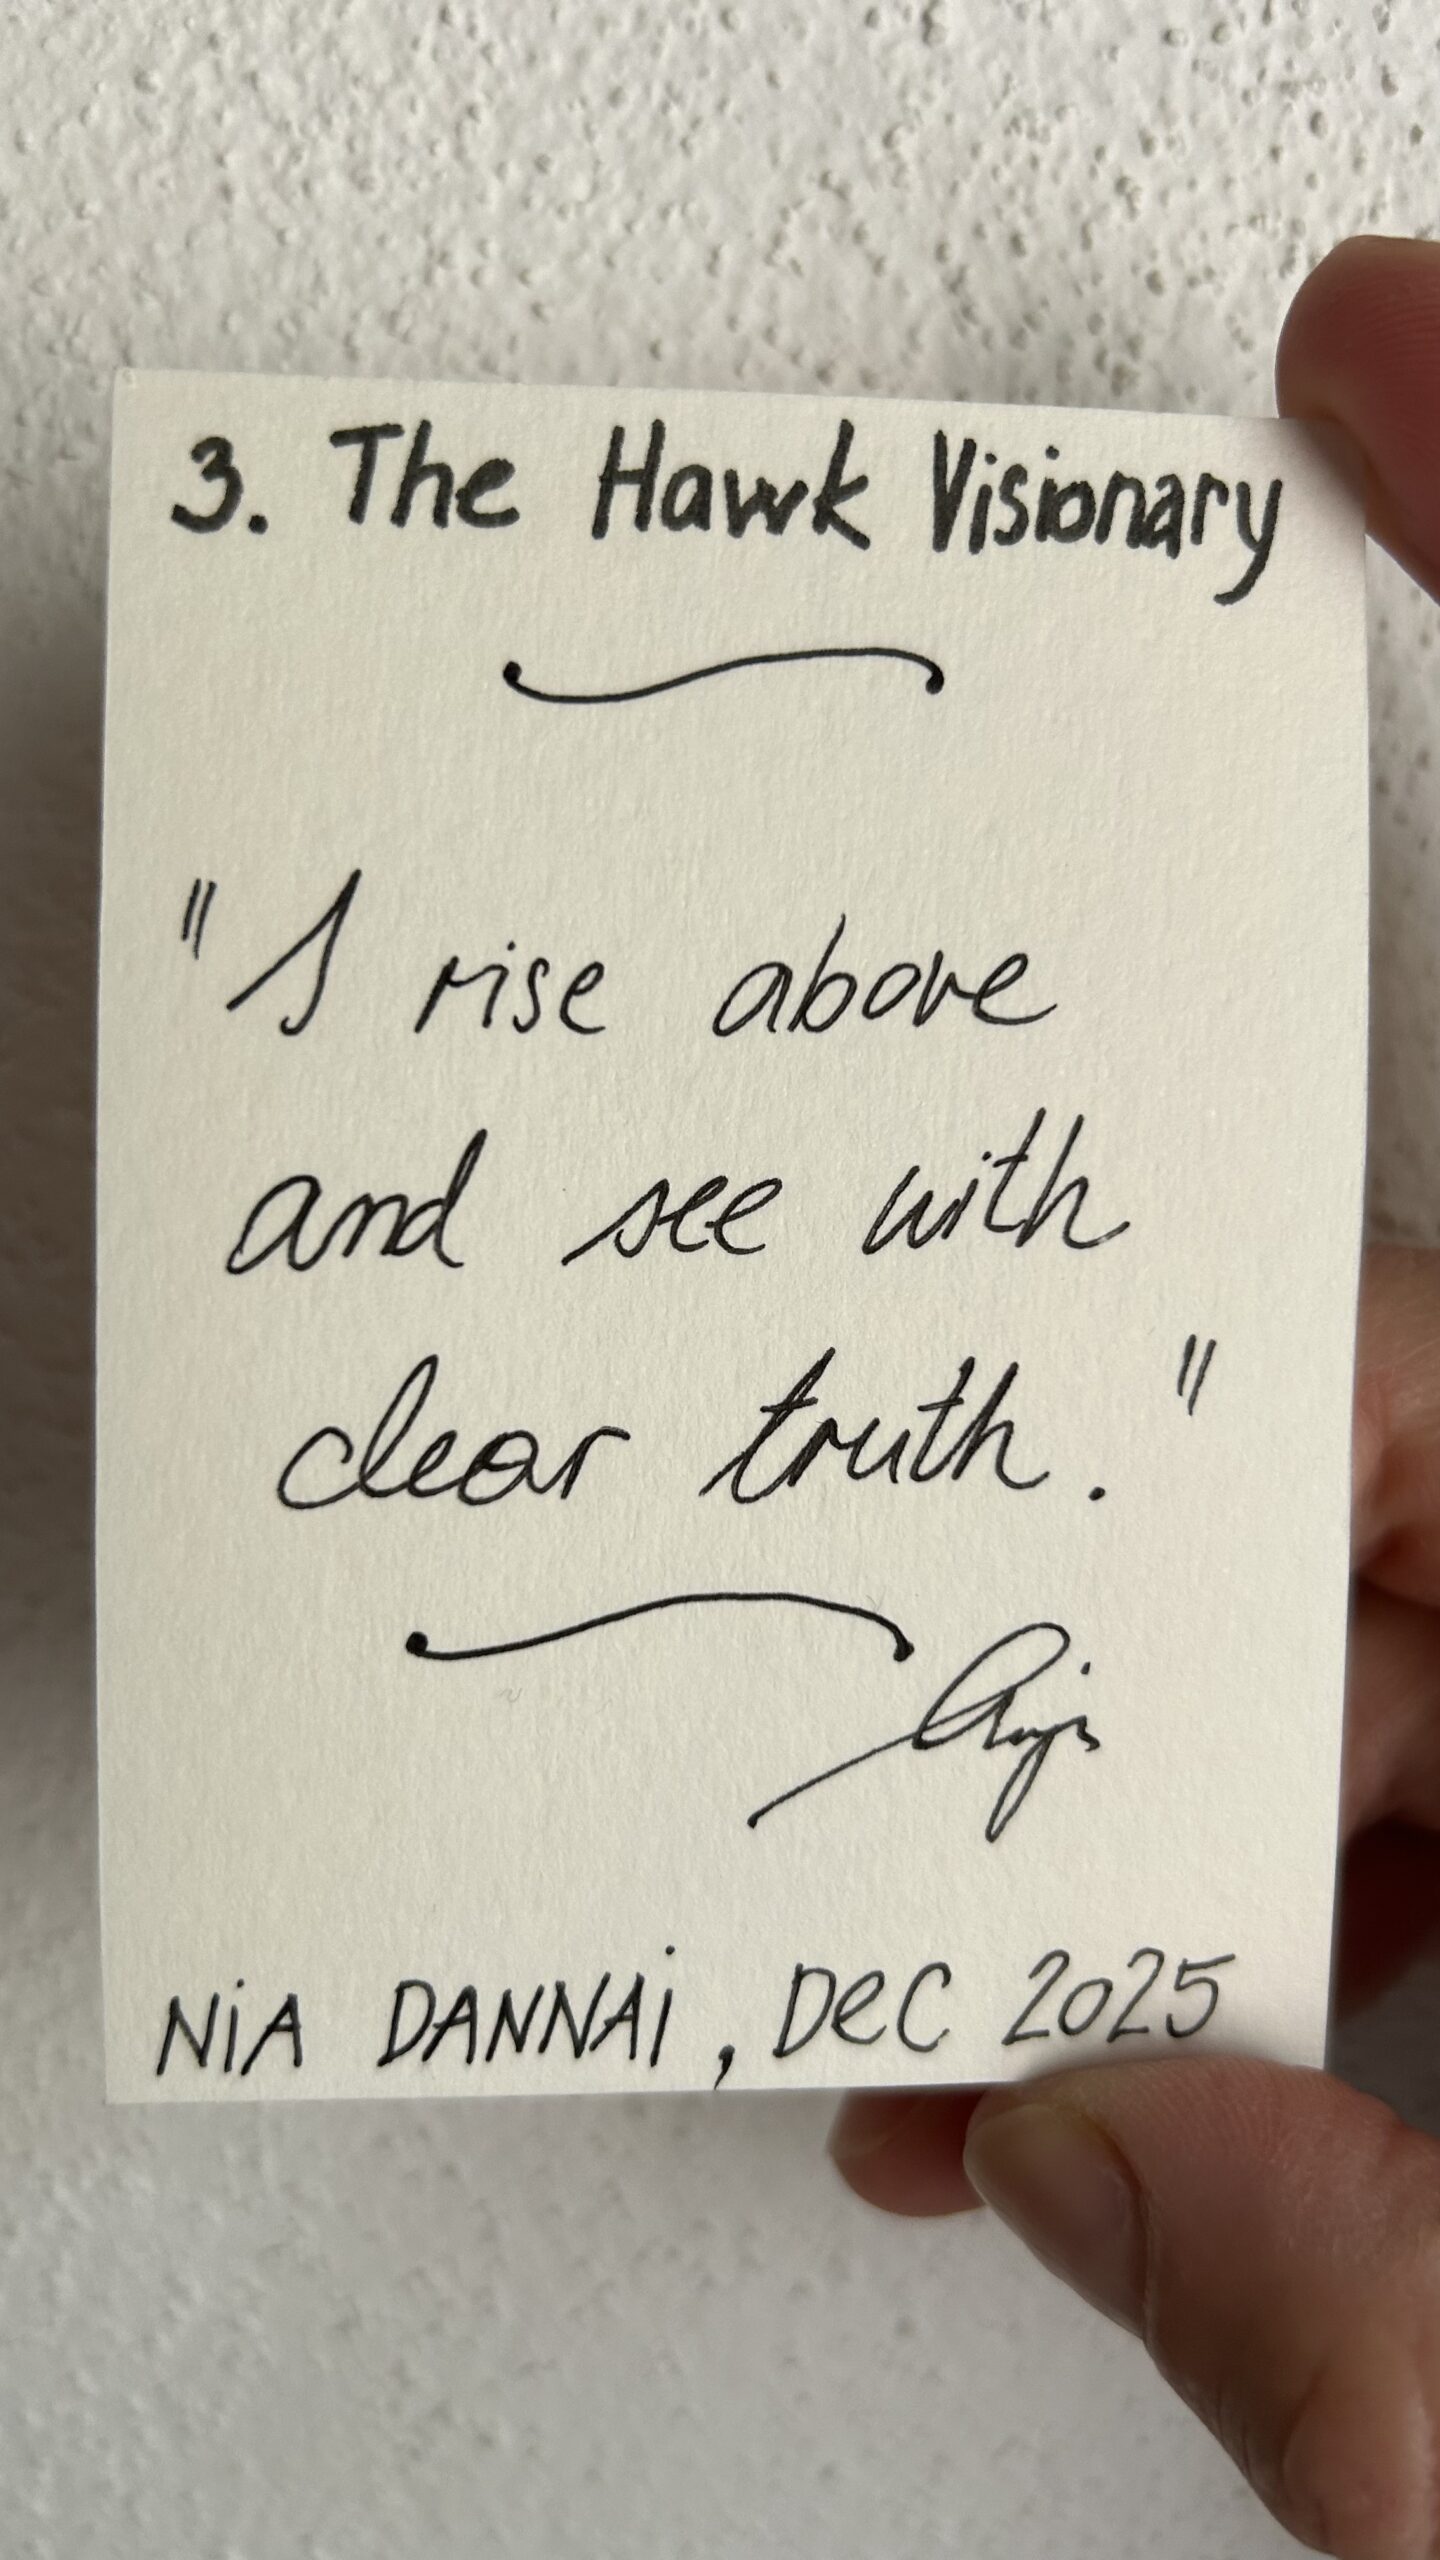 3. The Hawk Visionary
"I rise above
and see with
clear truth."
NiA DANNAi, DeC 2025